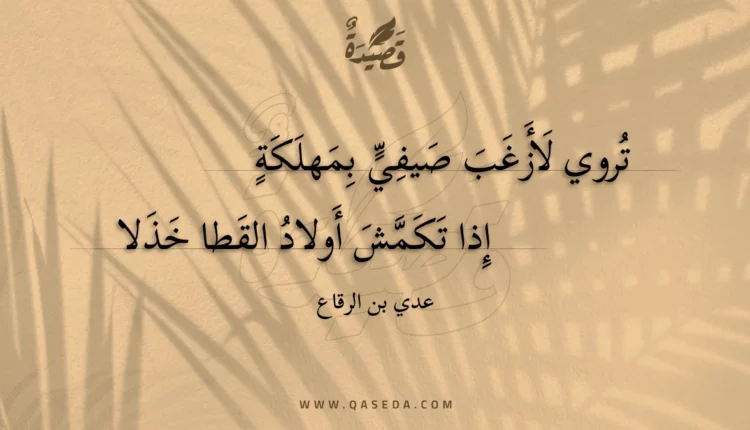 قَصِيْدَةٌ
تُروي لَأَزغَبَ صَيفِيٍّ بِمَهلَكَةٍ
إِذا تَكَمَّشَ أَولادُ القَطا خَذَلا
عدي بن الرقاع
WWW.QASEDA.COM